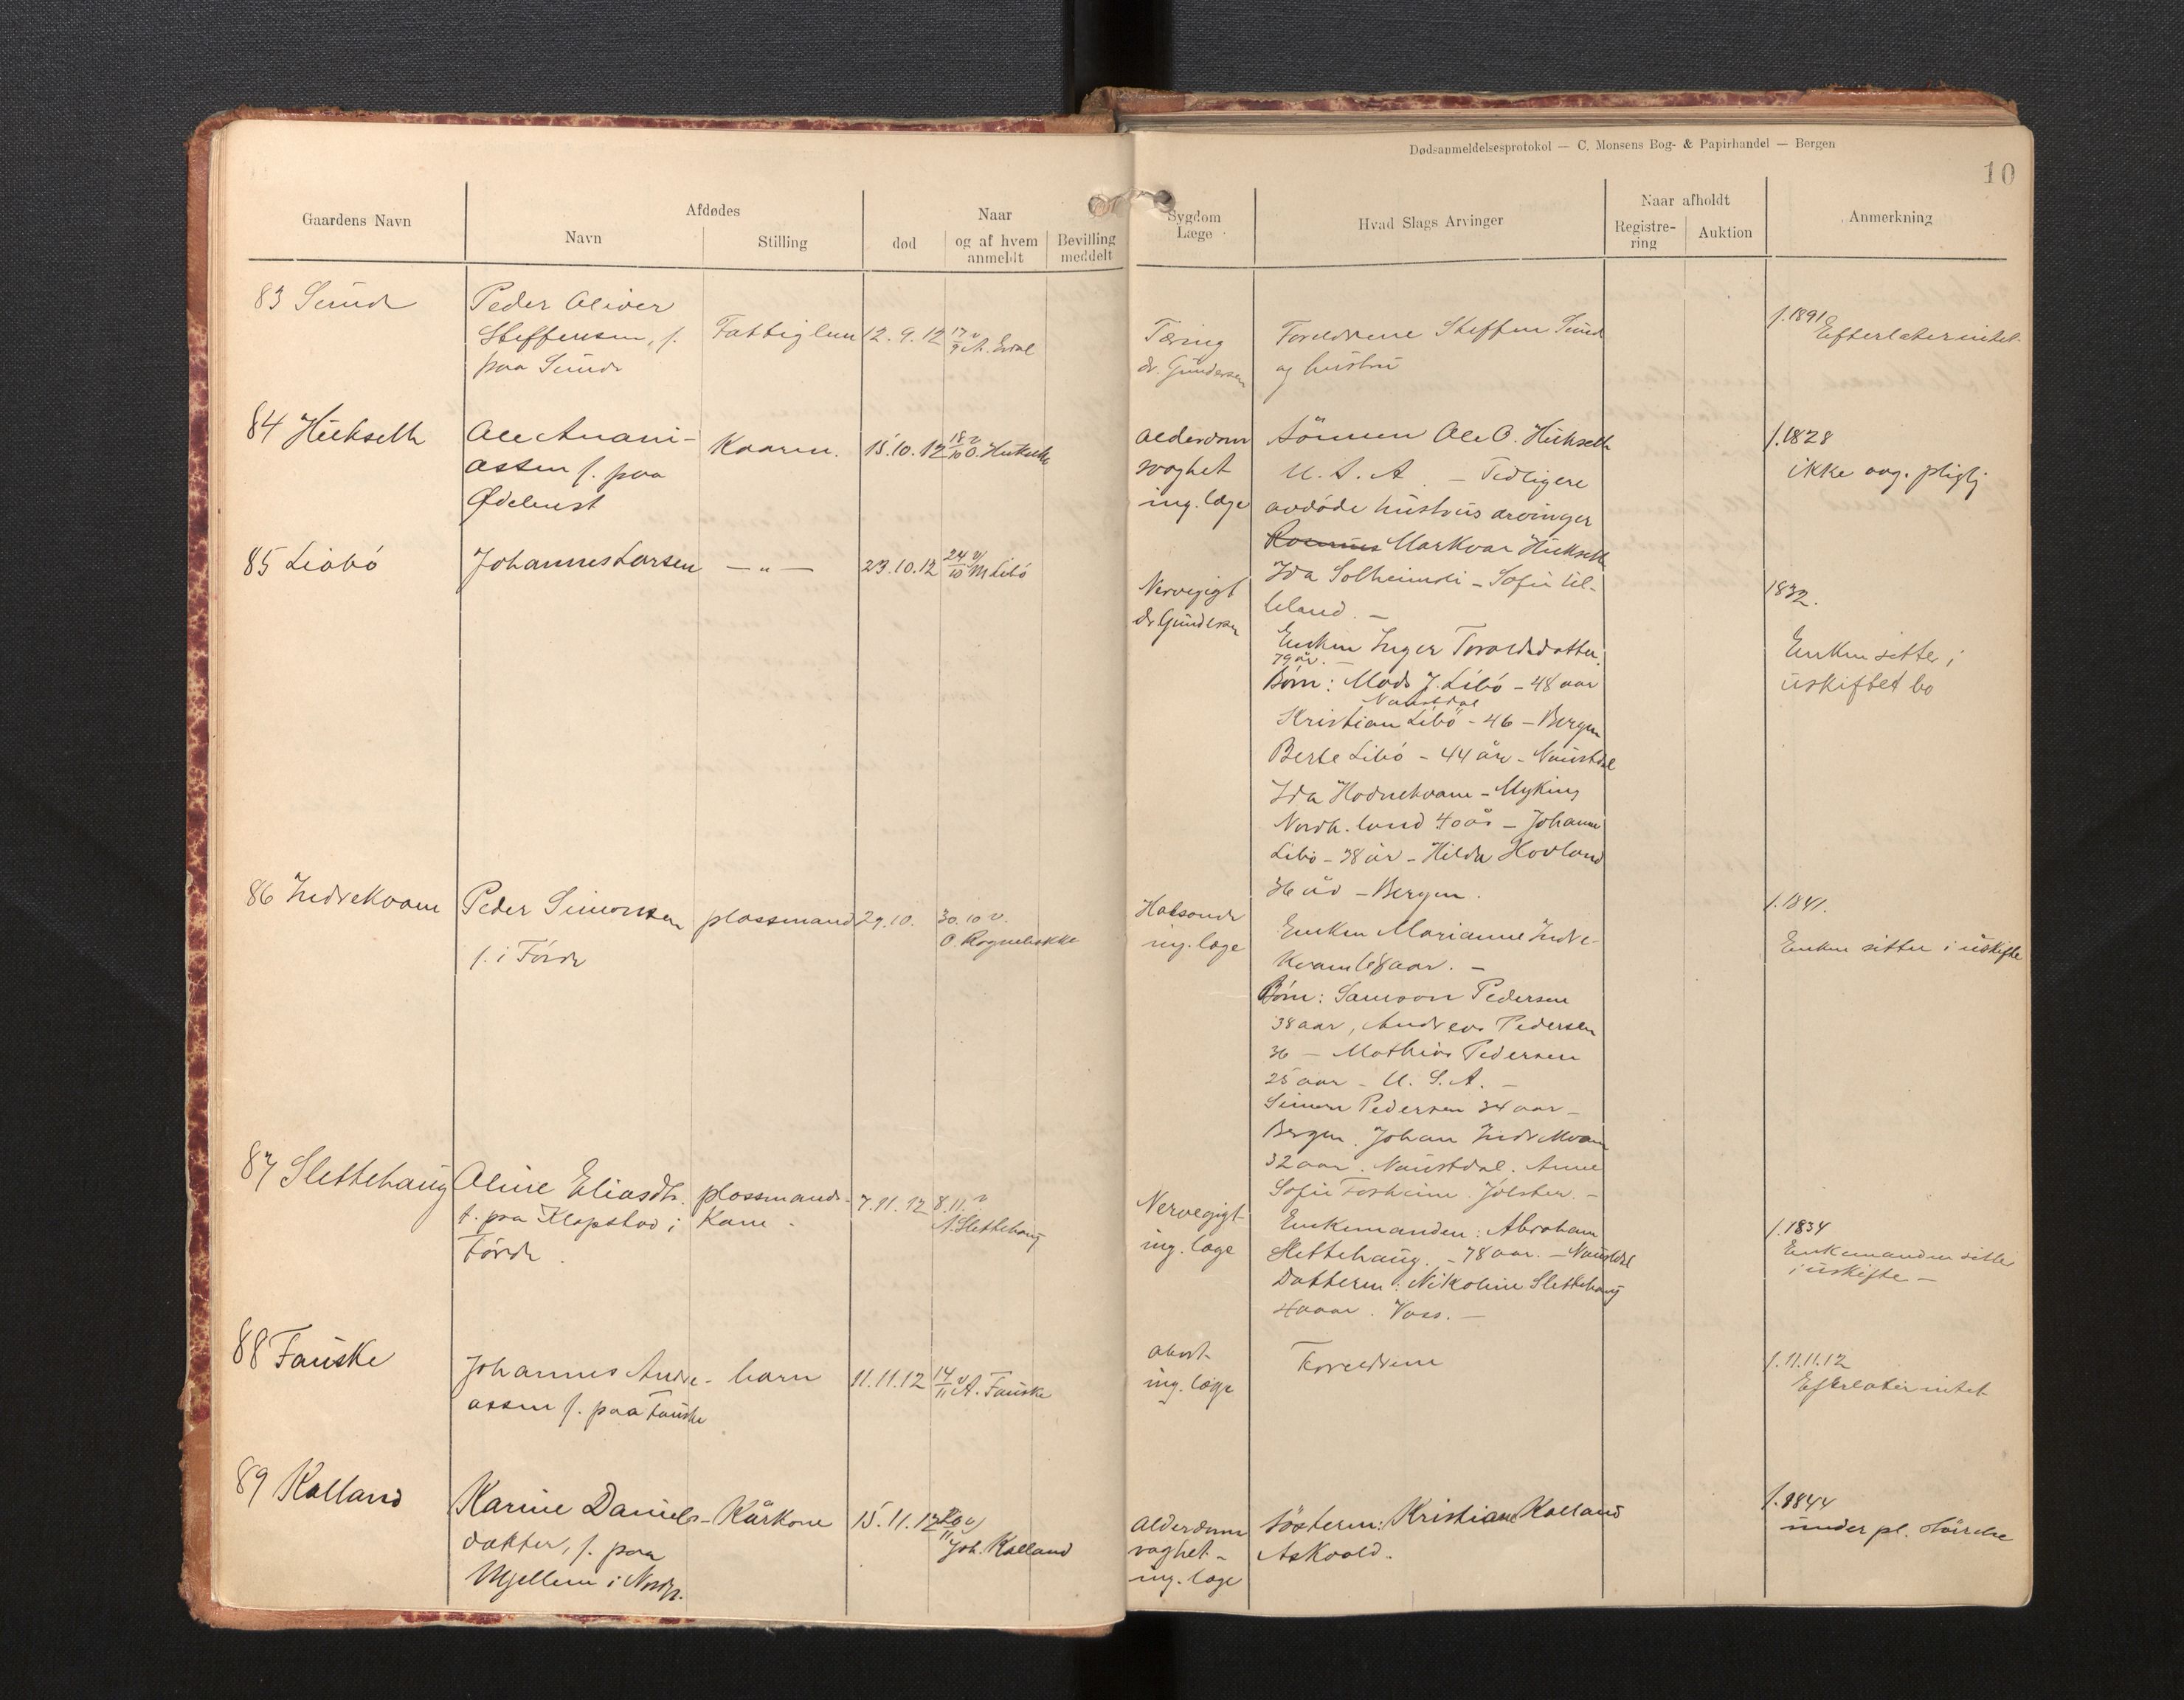 Dødsanmeldelsesprotokol — C. Monsens Bog- & Papirhandel — Bergen
10
Gaardens Navn
Afdødes
Navn
Stilling
Naar
død
og af hvem anmeldt
Bevilling meddelt
Sygdom
Læge
Hvad Slags Arvinger
Naar afholdt
Registre-
ring
Auktion
Anmerkning
83 Sunde
Peder Oliver
Steffensen, f.
paa Sunde
Fattiglem
12.9.12
17/9 v
A.
Tæring
dr. Gundersen
Foreldrene Steffen Sunde
og hustru
f. 1891
Efterlater intet.
84 Hukseth
Ole Anani-
assen f. paa
Ødelenst
Kaarm.
15.10.12
18/10 v
O. Hukseth
Alderdom
svaghet
ing. læge
Sönnen Ole O. Hukseth
U. S. A. — Tidligere
avdöde hustrus arvinger
Markvar Hukseth
Ida Solheimsli — Sofie Ul-
leland. —
f. 1828
ikke arg. pligtj
85 Liabö
Johannes Larsen
— „ —
23.10.12
24/10 v
M Libö
Nervegigt
dr Gundersen
Enken Inger Toraldsdatter.
79 år. —
Børn: Mads J. Libö — 48 aar
Naustdal
Kristian Libö - 46 — Bergen
Berte Libö - 44 år - Naustdal
Ida Hodnekvam — Myking
Nordh.land 40 år — Johanne
Libö — 38 år — Hilda Hovland
36 år — Bergen.
1832.
Enken sitter i
uskiftet bo
86 Indrekvam
Peder Simonsen
f. i Förde
plassmand
29.10.
30.10 v.
O. Rognebakke
Halsonde
ing. læge
Enken Marianne Indre-
Kvam 68 aar. —
Børn: Samson Pedersen
38 aar, Andreas Pedersen
36 — Mathias Pedersen
25 aar — U. S. A. —
Simon Pedersen 34 aar —
Bergen. Johan Indrekvam
32 aar. Naustdal. Anne
Sofie Forheim. Jölster. —
f. 1841.
Enken sitter i uskifte
87 Slettehaug
Oline Eliasdtr.
f. paa Klopstad i
Förde.
plassmands-
Kone.
7.11.12
8.11. v
A. Slettehaug
Nervegigt
ing. læge
Enkemanden: Abraham
Slettehaug. — 78 aar. — Naustdal
Datteren: Nikoline Slettehaug
40 aar. Voss. —
f. 1834
Enkemanden sitter
i uskifte —
88 Fauske
Johannes Andre-
assen f. paa Fauske
barn
11.11.12
14/11 v
A. Fauske
abort
ing. læge
Foreldrene
f. 11.11.12
Efterlater intet
89 Kalland
Karine Daniels-
datter, f. paa
Mjellem i Nordf.
Kårkone
15.11.12
20/11 v
Joh. Kalland
Alderdom
svaghet —
ing. læge
Søsteren: Kristiane Kalland
Askvold.
f. 1844
under pl.